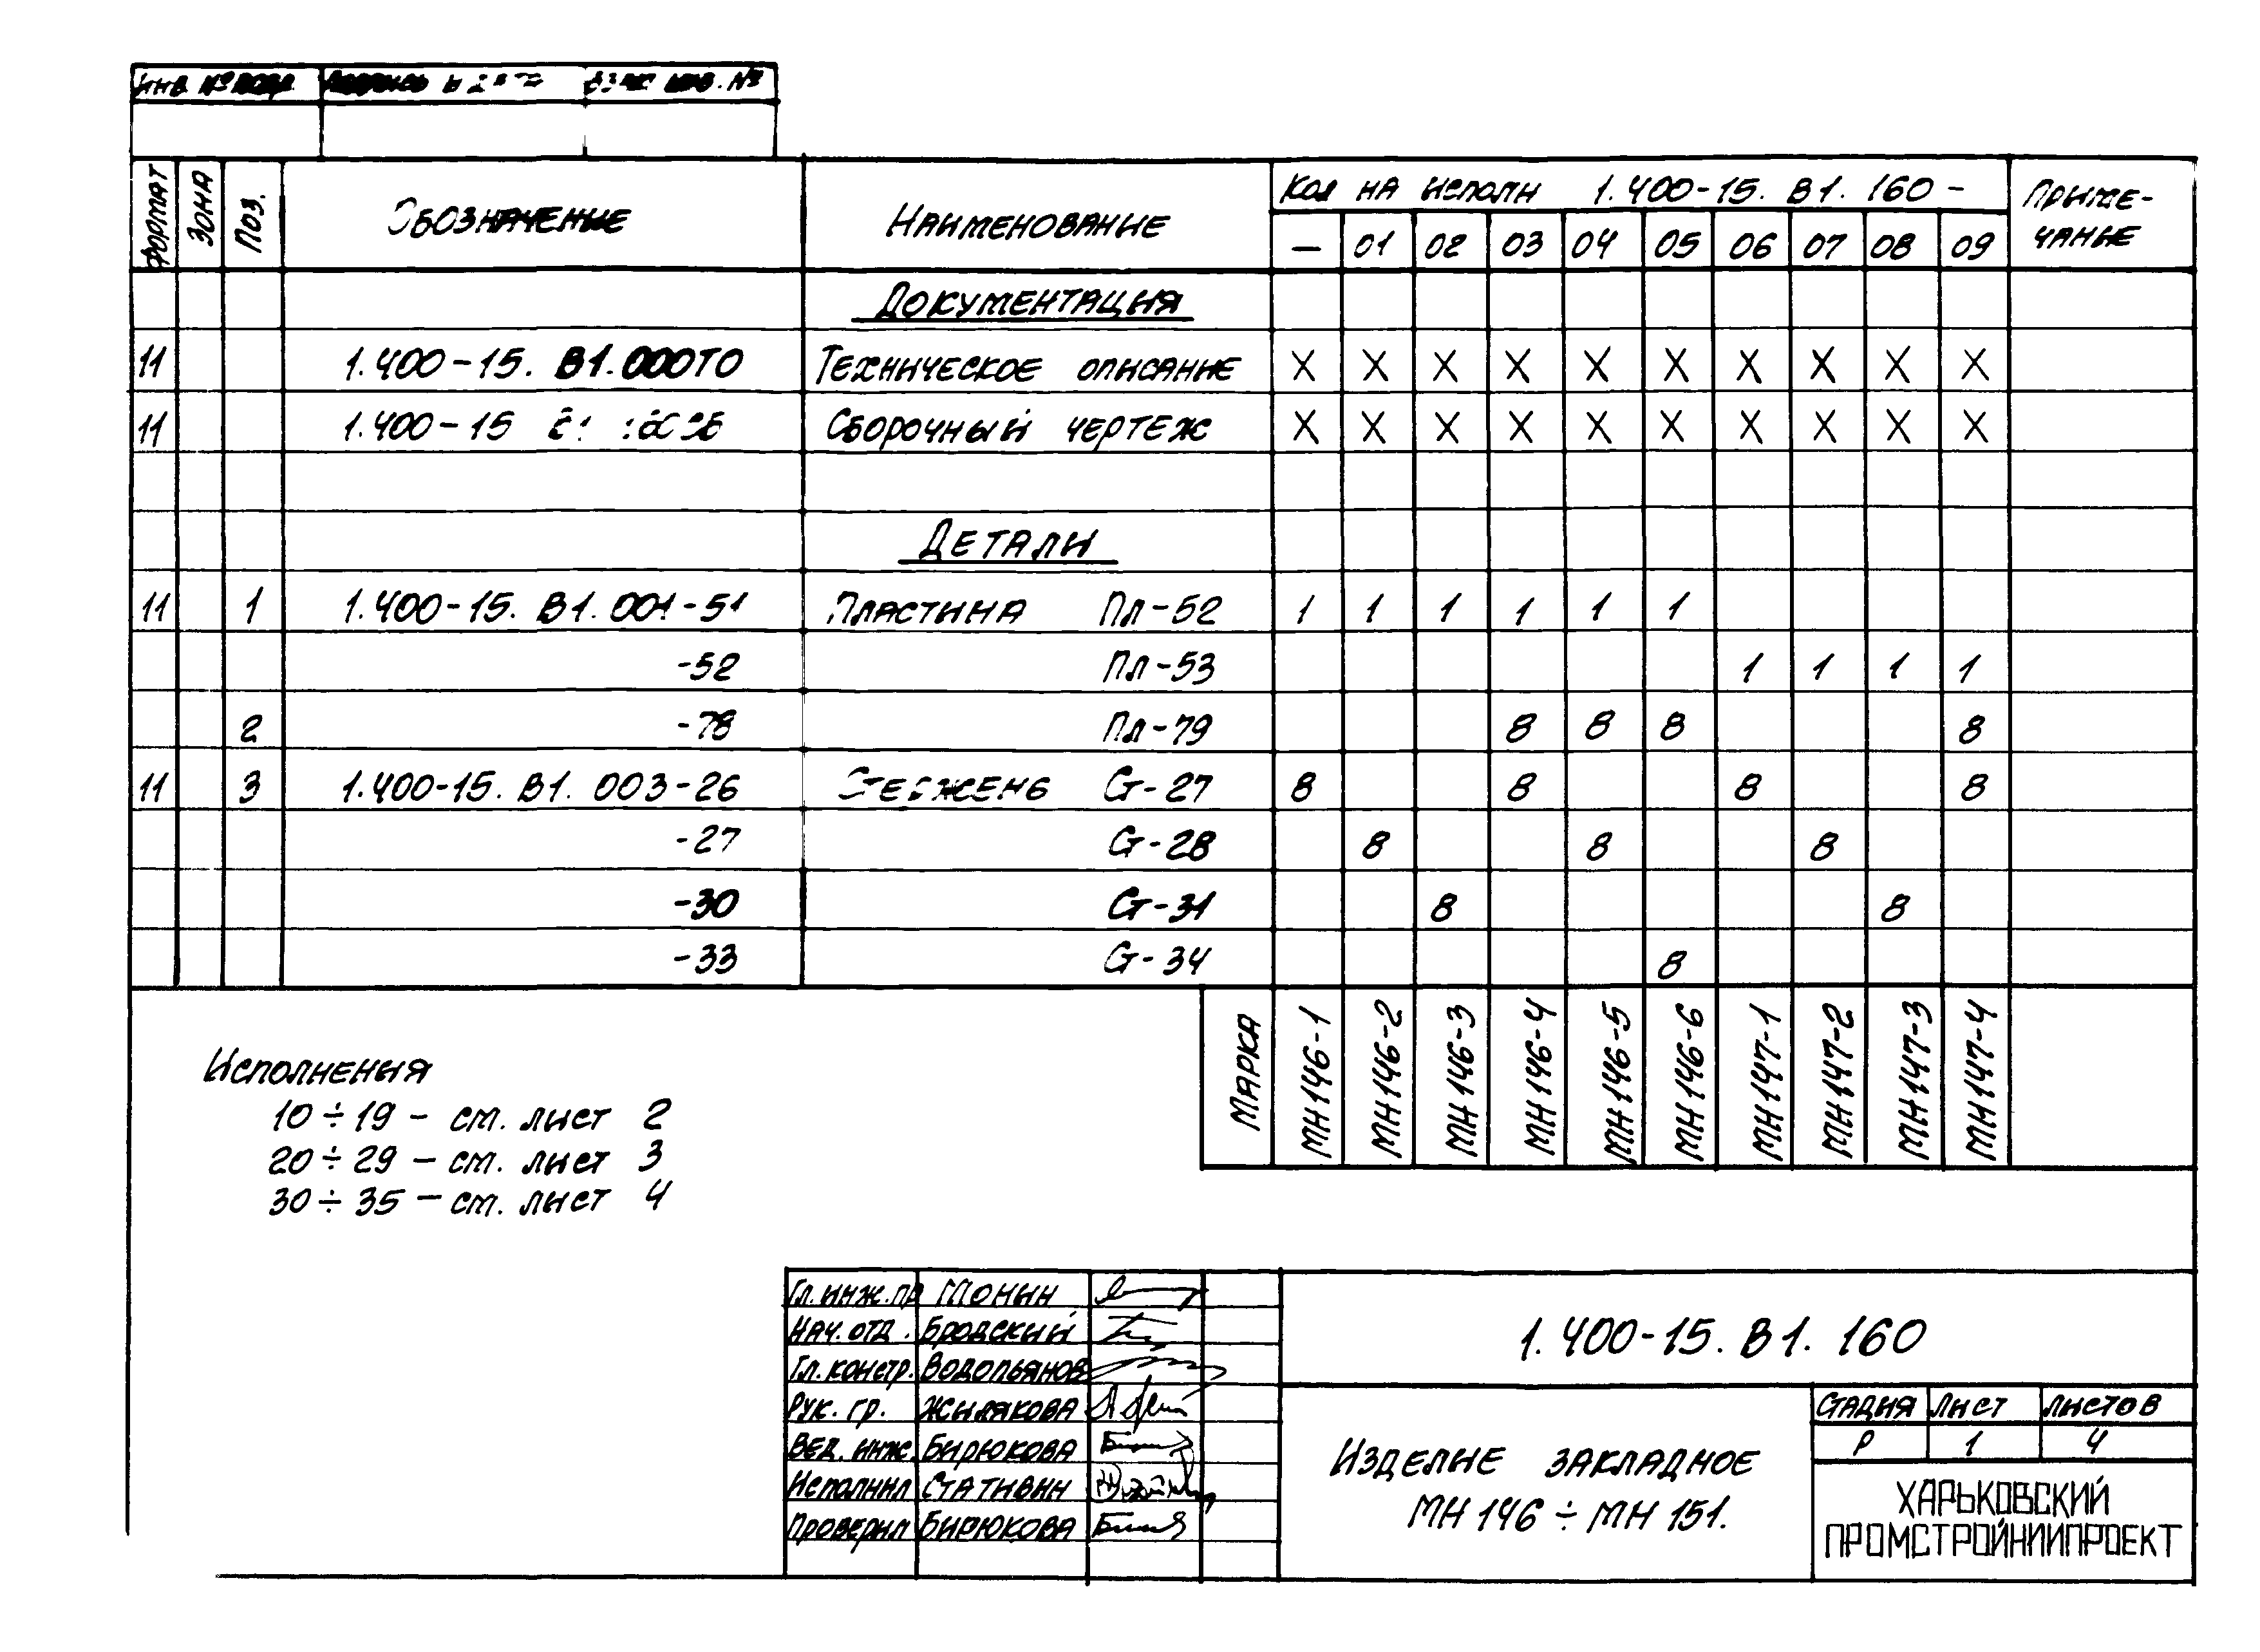 Инв. № подл. Подпись и дата Взам. инв. №
Формат Зона Поз. Обозначение Наименование Кол на исполн 1.400-15. В1. 160 - Приме-
чание
— 01 02 03 04 05 06 07 08 09
Документация
11 1.400-15. В1.000ТО Техническое описание X X X X X X X X X X
11 1.400-15 Сборочный чертеж X X X X X X X X X X
Детали
11 1 1.400-15. В1. 001-51 Пластина Пл-52 1 1 1 1 1 1
-52 Пл-53 1 1 1 1
2 -78 Пл-79 8 8 8 8
11 3 1.400-15. В1. 003-26 Стержень Ст-27 8 8 8 8
-27 Ст-28 8 8 8
-30 Ст-31 8 8
-33 Ст-34 8
Марка МН146-1 МН146-2 МН146-3 МН146-4 МН146-5 МН146-6 МН147-1 МН147-2 МН147-3 МН147-4
Исполнения
10÷19 - см. лист 2
20÷29 - см. лист 3
30÷35 - см. лист 4
Гл. инж. пр
Нач. отд. Бродский
Гл. констр. Водопьянов
Рук. гр. Жилякова
Вед. инж. Бирюкова
Исполнил Стативин
Проверил Бирюкова
1.400-15. В1. 160
Изделие закладное
МН 146 ÷ МН 151.
Стадия Лист Листов
Р 1 4
ХАРЬКОВСКИЙ
ПРОМСТРОЙНИИПРОЕКТ